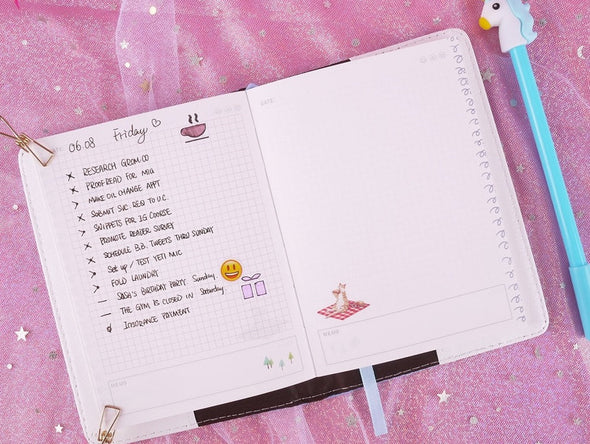 DATE:
06.08 Friday
x RESEARCH GROM.CO
x PROOFREAD FOR MIG
> MAKE OIL CHANGE APPT
x SUBMIT SVC. REQ TO U.C.
> SNIPPETS FOR IG COURSE
x PROMOTE READER SURVEY
x SCHEDULE B.B. TWEETS THRU SUNDAY
> Set up / TEST YETI MIC
> FOLD LAUNDRY
— BIRTHDAY PARTY. Sunday.
— THE GYM IS CLOSED IN Saturday.
INSURANCE PAYMENT
MEMO
DATE:
MEMO